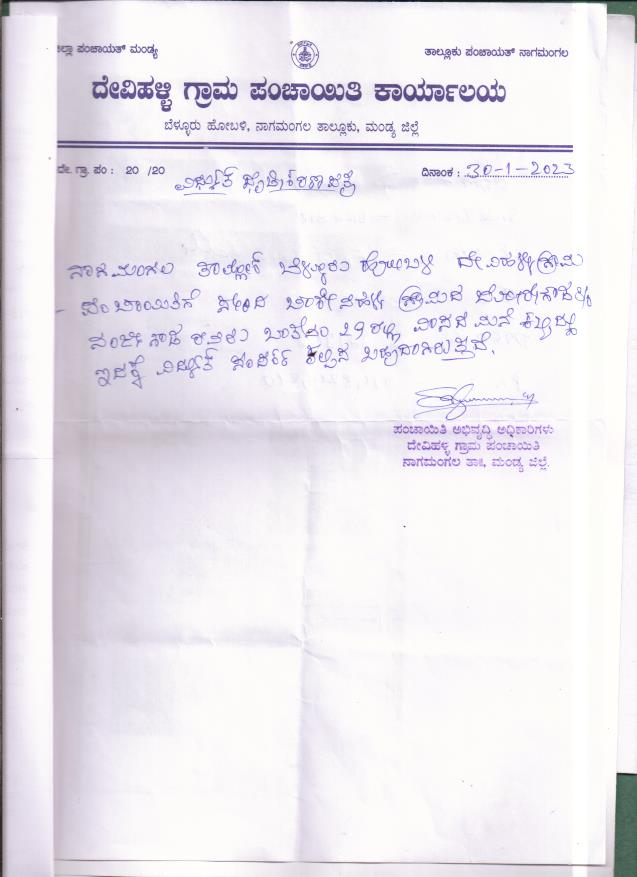 ಜಿಲ್ಲಾ ಪಂಚಾಯತ್ ಮಂಡ್ಯ
ತಾಲ್ಲೂಕು ಪಂಚಾಯತ್ ನಾಗಮಂಗಲ
ದೇವಿಹಳ್ಳಿ ಗ್ರಾಮ ಪಂಚಾಯಿತಿ ಕಾರ್ಯಾಲಯ
ಬೆಳ್ಳೂರು ಹೋಬಳಿ, ನಾಗಮಂಗಲ ತಾಲ್ಲೂಕು, ಮಂಡ್ಯ ಜಿಲ್ಲೆ
ದೇ. ಗ್ರಾ. ಪಂ : 20 /20
ದಿನಾಂಕ : 30-1-2023
ವಿದ್ಯುತ್ ಪತ್ರ
ನಾಗಮಂಗಲ ತಾಲ್ಲೋಕ್ ಬೆಳ್ಳೂರು ಹೋಬಳಿ ದೇವಿಹಳ್ಳಿ ಗ್ರಾಮ
ಪಂಚಾಯಿತಿಗೆ ಸೇರಿದ ಗ್ರಾಮದ
ನಂಜೇಗೌಡ ರವರು ಖಾತೆ ನಂ 29 ರಲ್ಲಿ ವಾಸದ ಮನೆ
ಇದಕ್ಕೆ ವಿದ್ಯುತ್ ಸಂಪರ್ಕ ಕಲ್ಪಿಸ ಬಹುದಾಗಿರುತ್ತದೆ.
ಪಂಚಾಯಿತಿ ಅಭಿವೃದ್ಧಿ ಅಧಿಕಾರಿಗಳು
ದೇವಿಹಳ್ಳಿ ಗ್ರಾಮ ಪಂಚಾಯಿತಿ
ನಾಗಮಂಗಲ ತಾ||, ಮಂಡ್ಯ ಜಿಲ್ಲೆ.